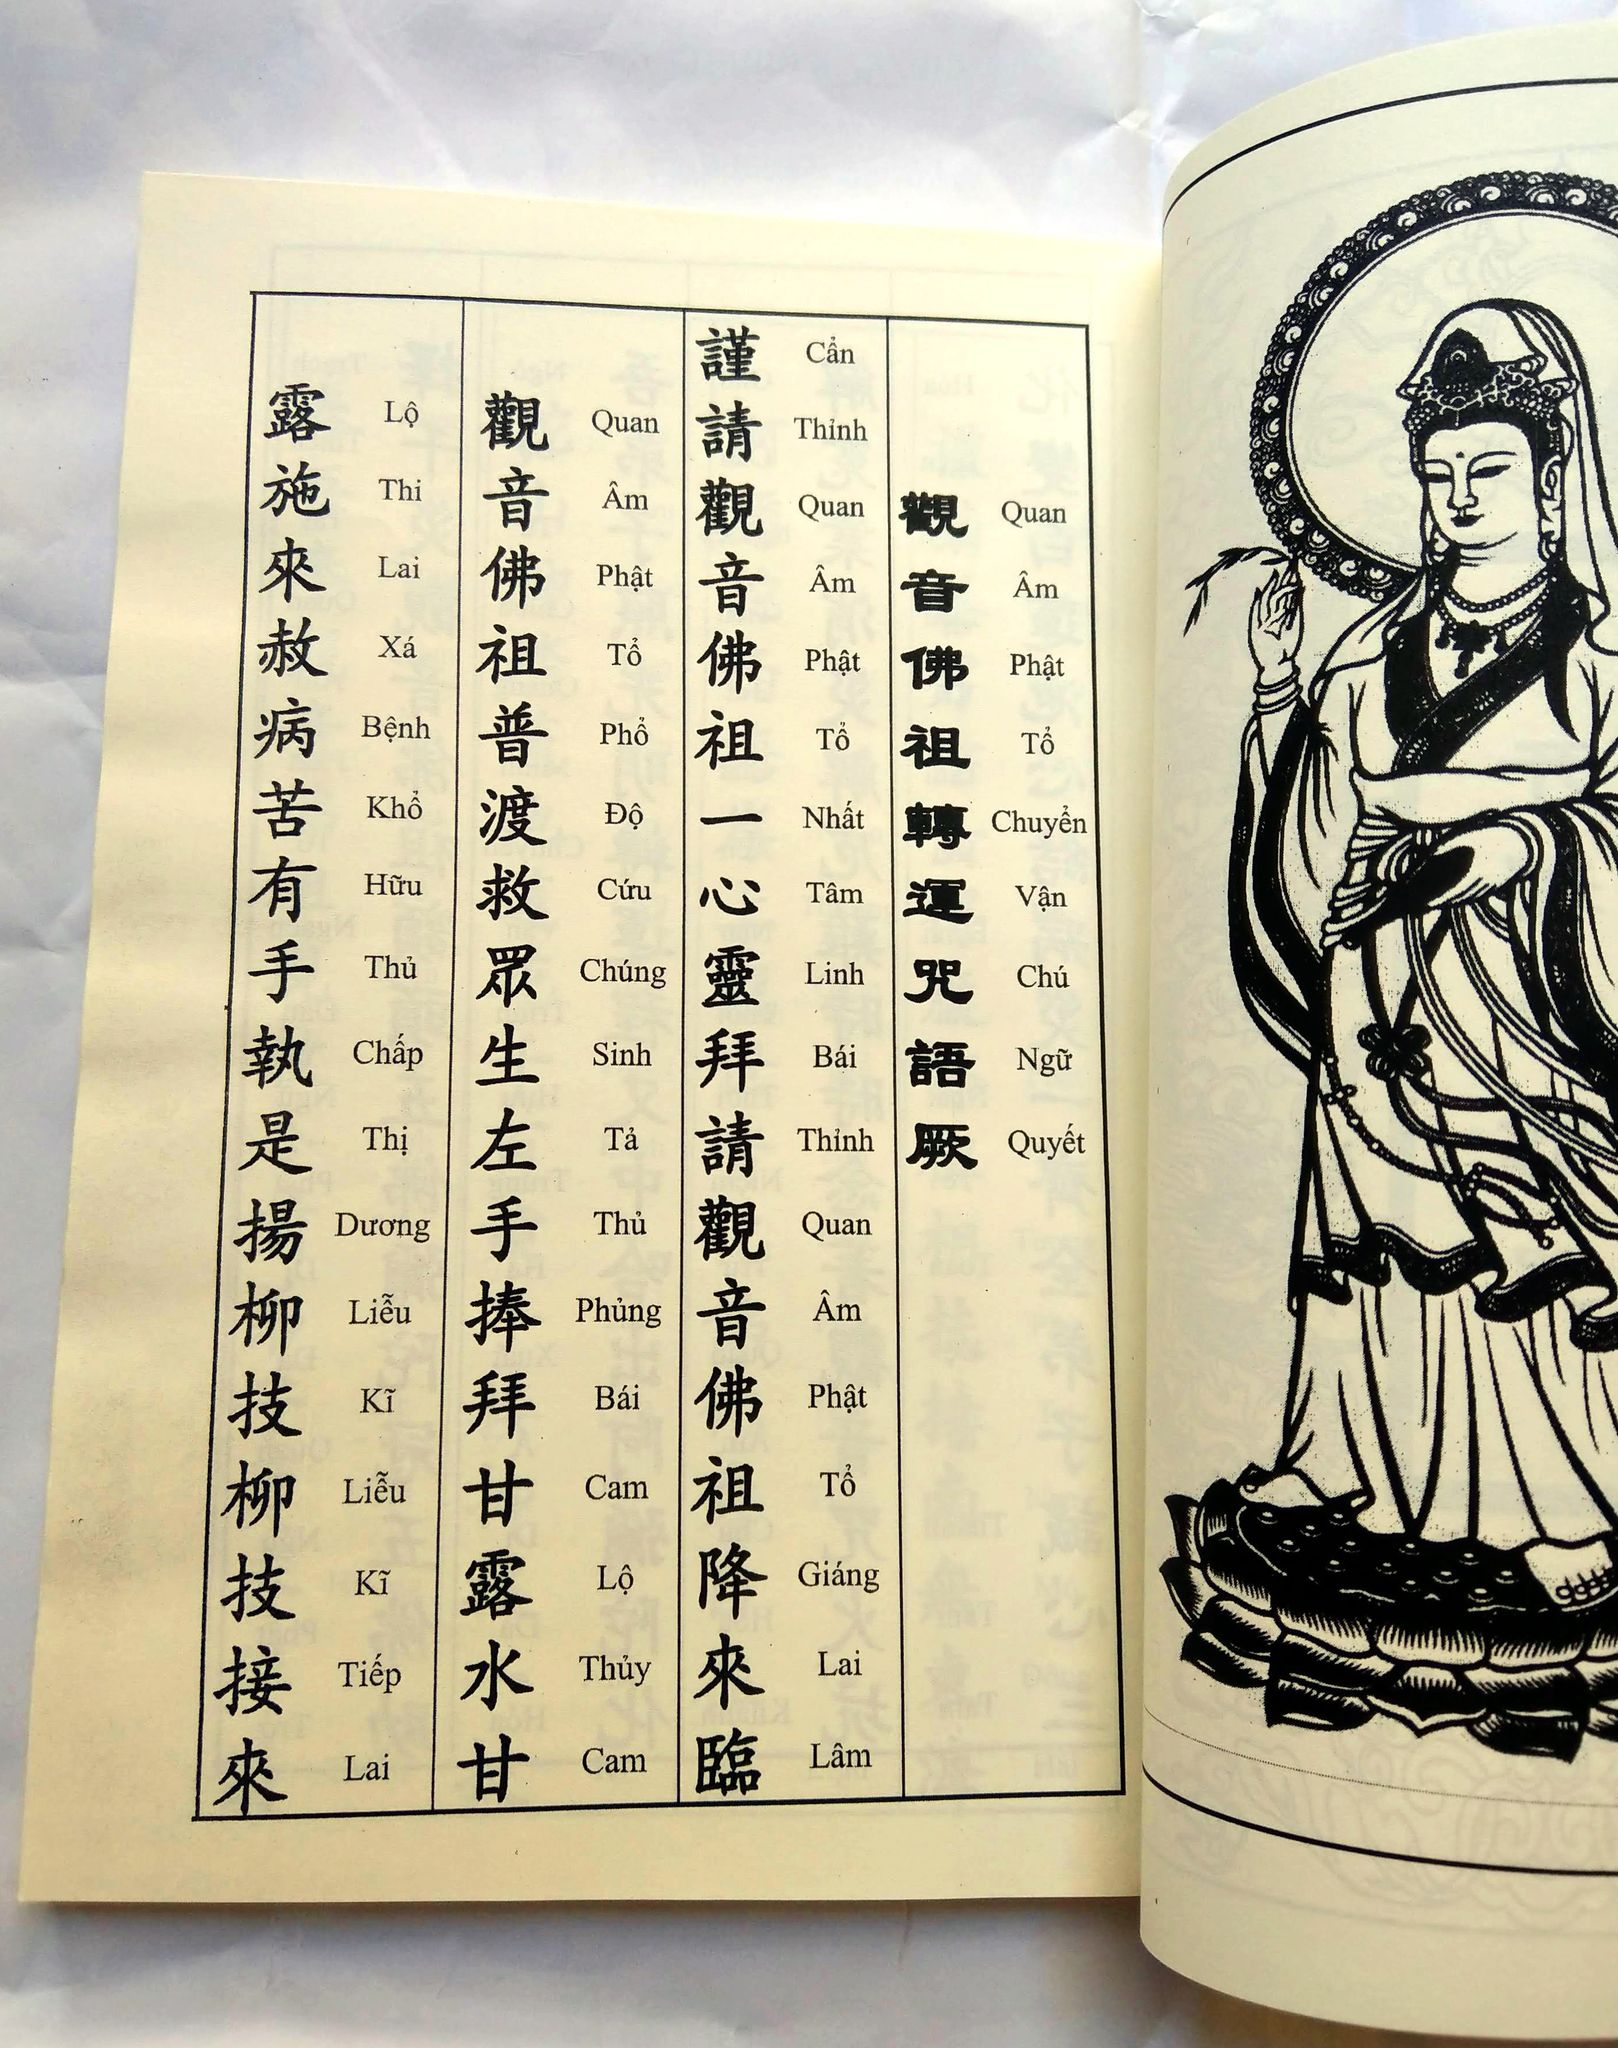 觀音佛祖轉運咒語厥
Quan Âm Phật Tổ Chuyển Vận Chú Ngữ Quyết
謹請觀音佛祖一心靈拜請觀音佛祖降來臨
Cẩn Thỉnh Quan Âm Phật Tổ Nhất Tâm Linh Bái Thỉnh Quan Âm Phật Tổ Giáng Lai Lâm
觀音佛祖普渡救眾生左手捧拜甘露水甘
Quan Âm Phật Tổ Phổ Độ Cứu Chúng Sinh Tả Thủ Phủng Bái Cam Lộ Thủy Cam
露施來赦病苦有手執是揚柳技柳技接來
Lộ Thi Lai Xá Bệnh Khổ Hữu Thủ Chấp Thị Dương Liễu Kĩ Liễu Kĩ Tiếp Lai